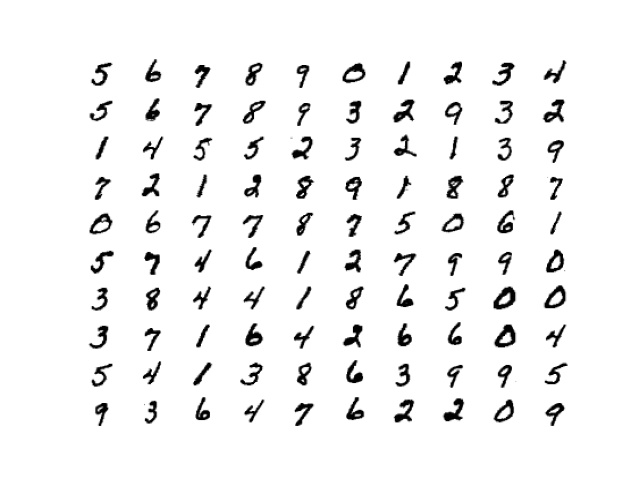 5 6 7 8 9 0 1 2 3 4
5 6 7 8 9 3 2 9 3 2
1 4 5 5 2 3 2 1 3 9
7 2 1 2 8 9 1 8 8 7
0 6 7 7 8 7 5 0 6 1
5 7 4 6 1 2 7 9 9 0
3 8 4 4 1 8 6 5 0 0
3 7 1 6 4 2 6 6 0 4
5 4 1 3 8 6 3 9 9 5
9 3 6 4 7 6 2 2 0 9